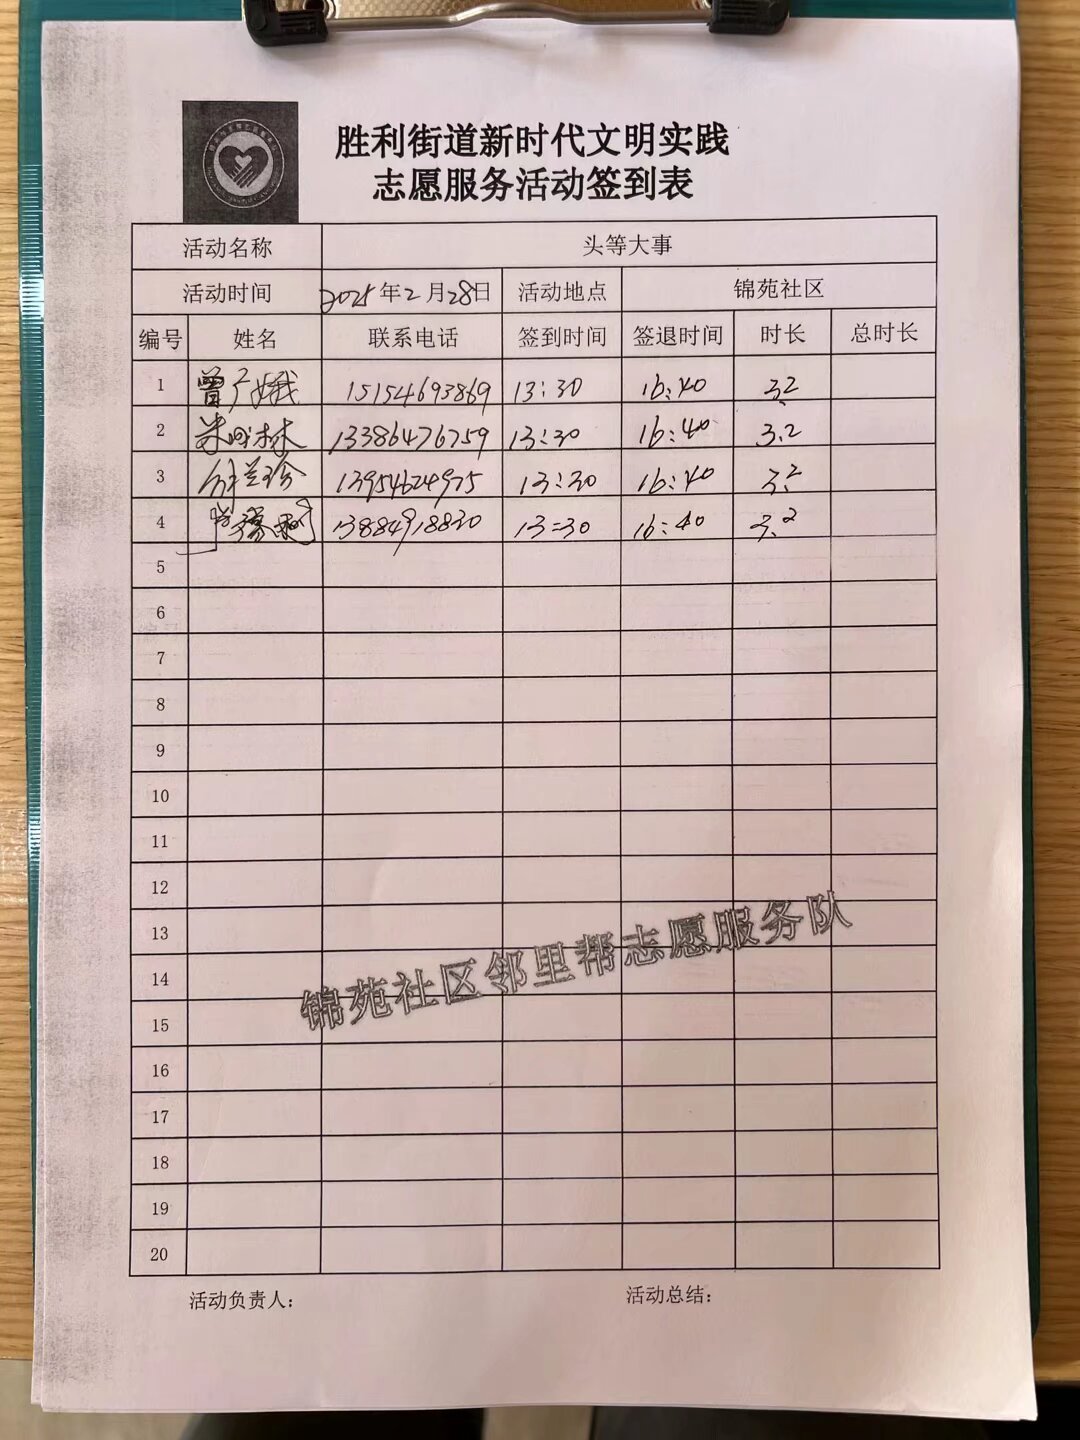 胜利街道新时代文明实践
志愿服务活动签到表
活动名称 头等大事
活动时间 2025年2月28日 活动地点 锦苑社区
编号 姓名 联系电话 签到时间 签退时间 时长 总时长
1 曾广娥 15154693869 13:30 16:40 3.2
2 13386476759 13:30 16:40 3.2
3 13954624975 13:30 16:40 3.2
4 13884918830 13:30 16:40 3.2
5
6
7
8
9
10
11
12
13
14
15
16
17
18
19
20
锦苑社区邻里帮志愿服务队
活动负责人: 活动总结: